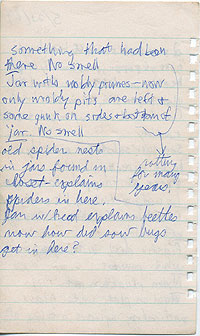 something that had been
there. No smell
Jar with moldy prunes - now
only moldy pits are left &
some gunk on sides & bottom of
jar. No smell
old spider nests
in jars found in
closet - explains
spiders in here.
Can w/ bread explains beetles
now how did sow bugs
get in here?
rotting
for many
years!